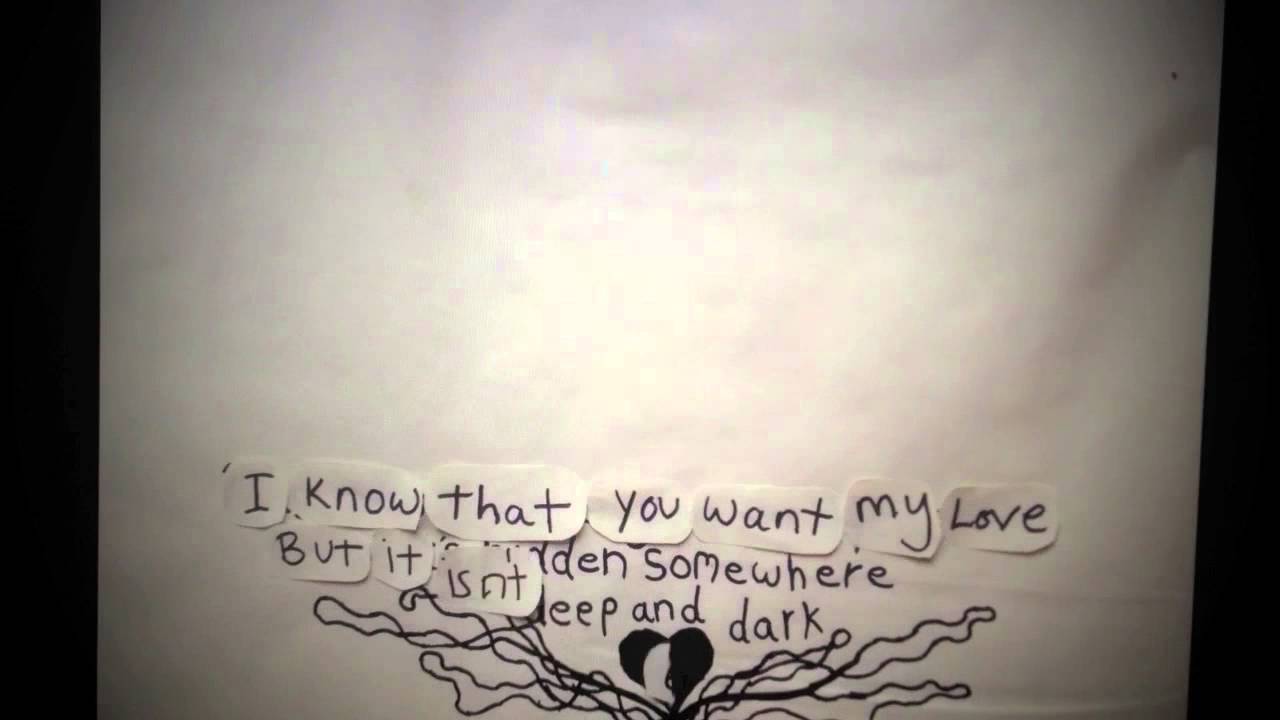 I know that you want my Love
But it isnt somewhere
and dark